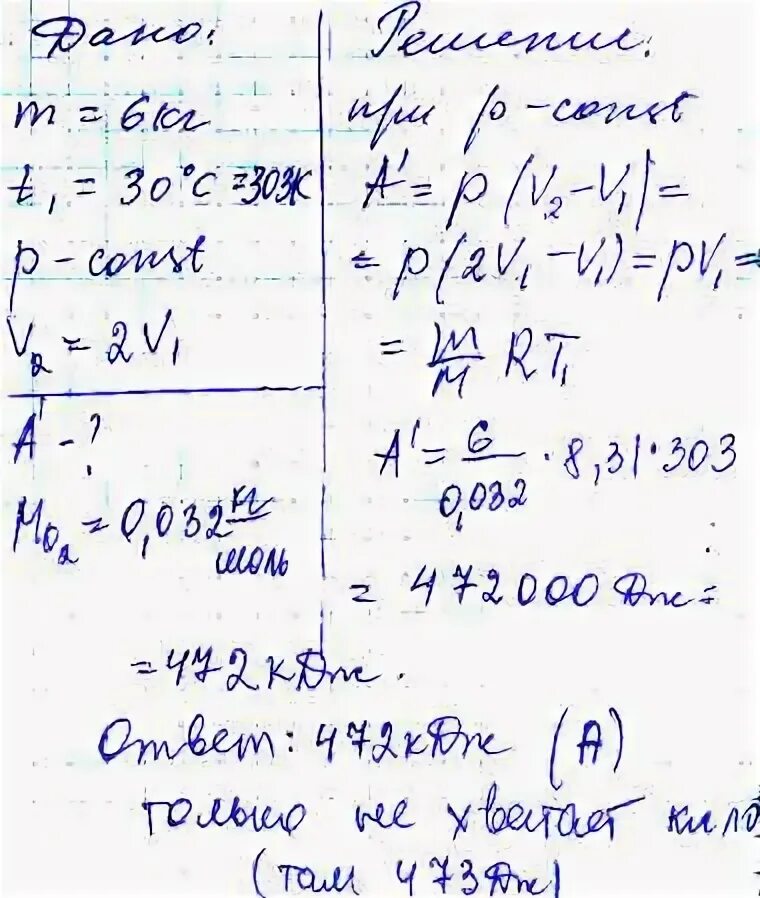 Дано:
m = 6кг
t₁ = 30°C = 303К
p - const
V₂ = 2V₁
A' - ?
M_O₂ = 0,032 кг/моль
Решение:
при p - const
A' = p(V₂ - V₁) =
= p(2V₁ - V₁) = pV₁ =
= m/M RT₁
A' = 6/0,032 · 8,31 · 303
= 472000 Дж =
= 472 кДж.
Ответ: 472 кДж (А)
только не хватает кило
(там 473 Дж)